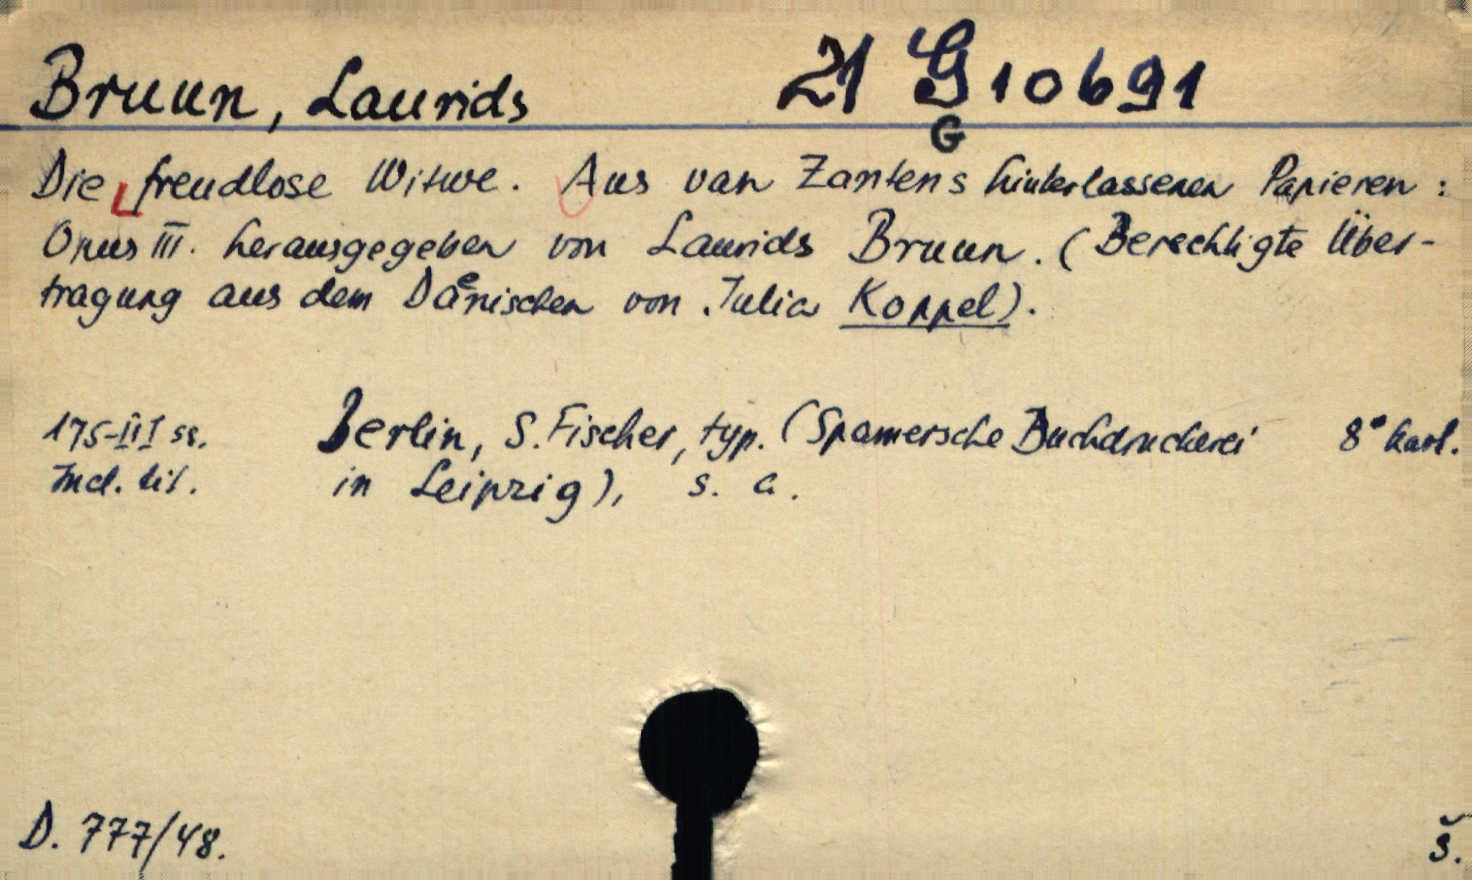 Bruun, Laurids 21 G 10691
G
Die freudlose Witwe. Aus van Zantens hinterlassenen Papieren:
Opus III. herausgegeben von Laurids Bruun. (Berechtigte Über-
tragung aus dem Daenischen von Julia Koppel).
175-III ss. Berlin, S. Fischer, typ. (Spamersche Buchdruckerei 8° kart.
Incl. tit. in Leipzig), s. a.
D. 777/48. š.